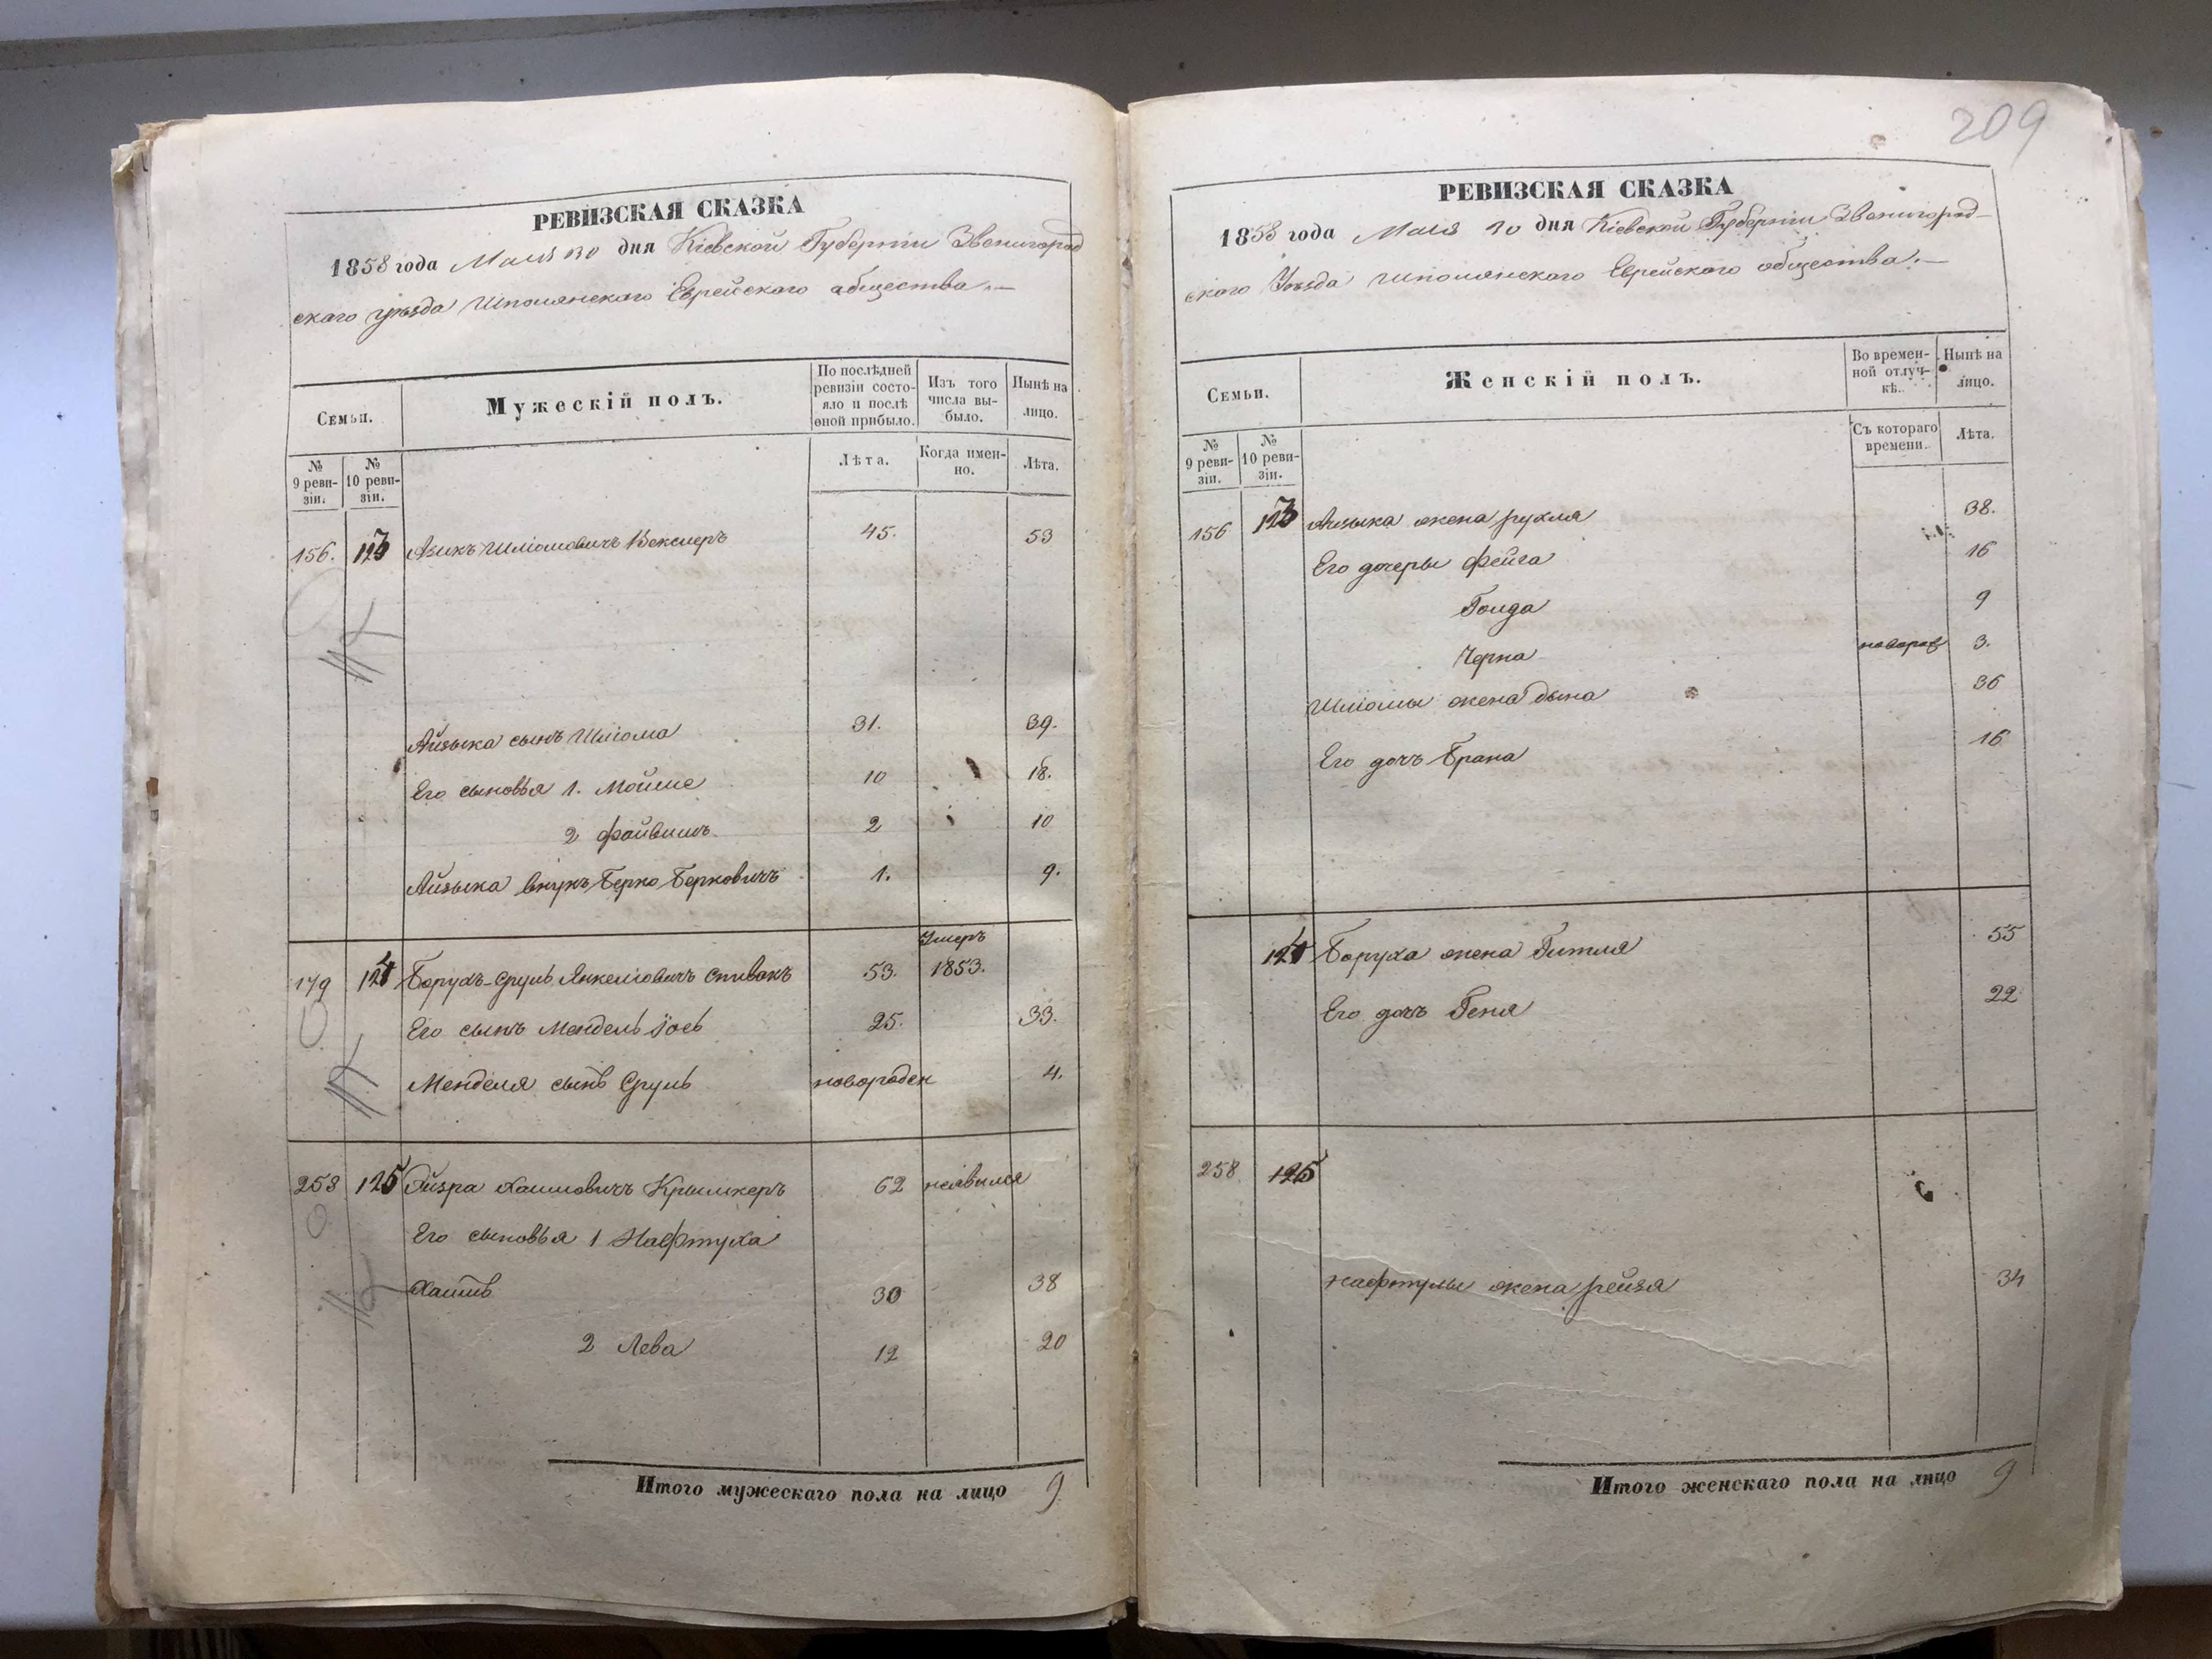 РЕВИЗСКАЯ СКАЗКА
1858 года Мая 30 дня Кіевской Губерніи Звенигород
скаго уѣзда Шполянскаго Еврейскаго общества.—
Семьи.
Мужескій полъ.
По послѣдней ревизіи состояло и послѣ оной прибыло.
Изъ того числа выбыло.
Нынѣ на лицо.
№ 9 ревизіи.
№ 10 ревизіи.
Лѣта.
Когда именно.
Лѣта.
156. 123 Азикъ Шліомовичъ Векслеръ 45. 53
Айзыка сынъ Шліома 31. 39.
Его сыновья 1. Мойше 10 18.
2 Файвишъ 2 10
Айзыка внукъ Берко Берковичъ 1. 9.
Умеръ
179 124 Борухъ-Сруль Янкеліовичъ Спивакъ 53. 1853.
Его сынъ Мендель Іось 25. 33.
Менделя сынъ Сруль новорожден 4.
258 125 Айзра Хаимовичъ Крымкеръ 62 неявился
Его сыновья 1 Нафтула
Хаимъ 30 38
2 Лева 12 20
Итого мужескаго пола на лицо 9
209
РЕВИЗСКАЯ СКАЗКА
1858 года Мая 30 дня Кіевской Губерніи Звенигород-
скаго Уѣзда Шполянскаго Еврейскаго общества.—
Семьи.
Женскій полъ.
Во временной отлучкѣ.
Нынѣ на лицо.
№ 9 ревизіи.
№ 10 ревизіи.
Съ котораго времени.
Лѣта.
156 123 Айзыка жена Рухля 38.
Его дочеры Фейга 16
Голда 9
Черна новорож 3.
Шліомы жена Дына 36
Его дочъ Брана 16
124 Боруха жена Гитля 55
Его дочъ Геня 22
258 125
Нафтулы жена Рейзя 34
Итого женскаго пола на лицо 9